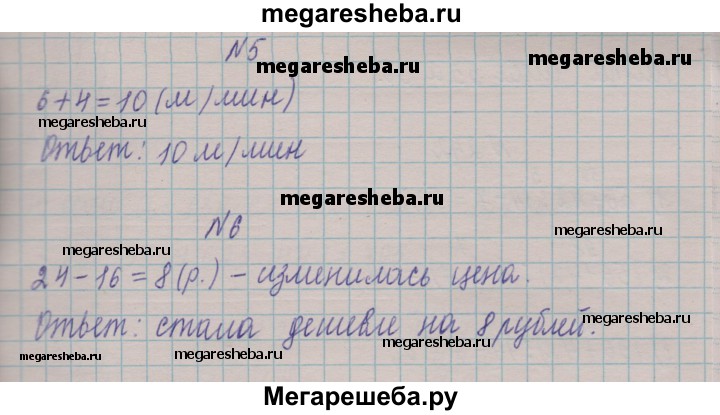 megaresheba.ru
№5
megaresheba.ru
megaresheba.ru
6+4=10 (м/мин)
megaresheba.ru
Ответ: 10 м/мин
megaresheba.ru
№6
megaresheba.ru
megaresheba.ru
24-16=8(р.) - изменилась цена.
Ответ: стала дешевле на 8 рублей.
megaresheba.ru
megaresheba.ru
megaresheba.ru
megaresheba.ru
Мегарешеба.ру